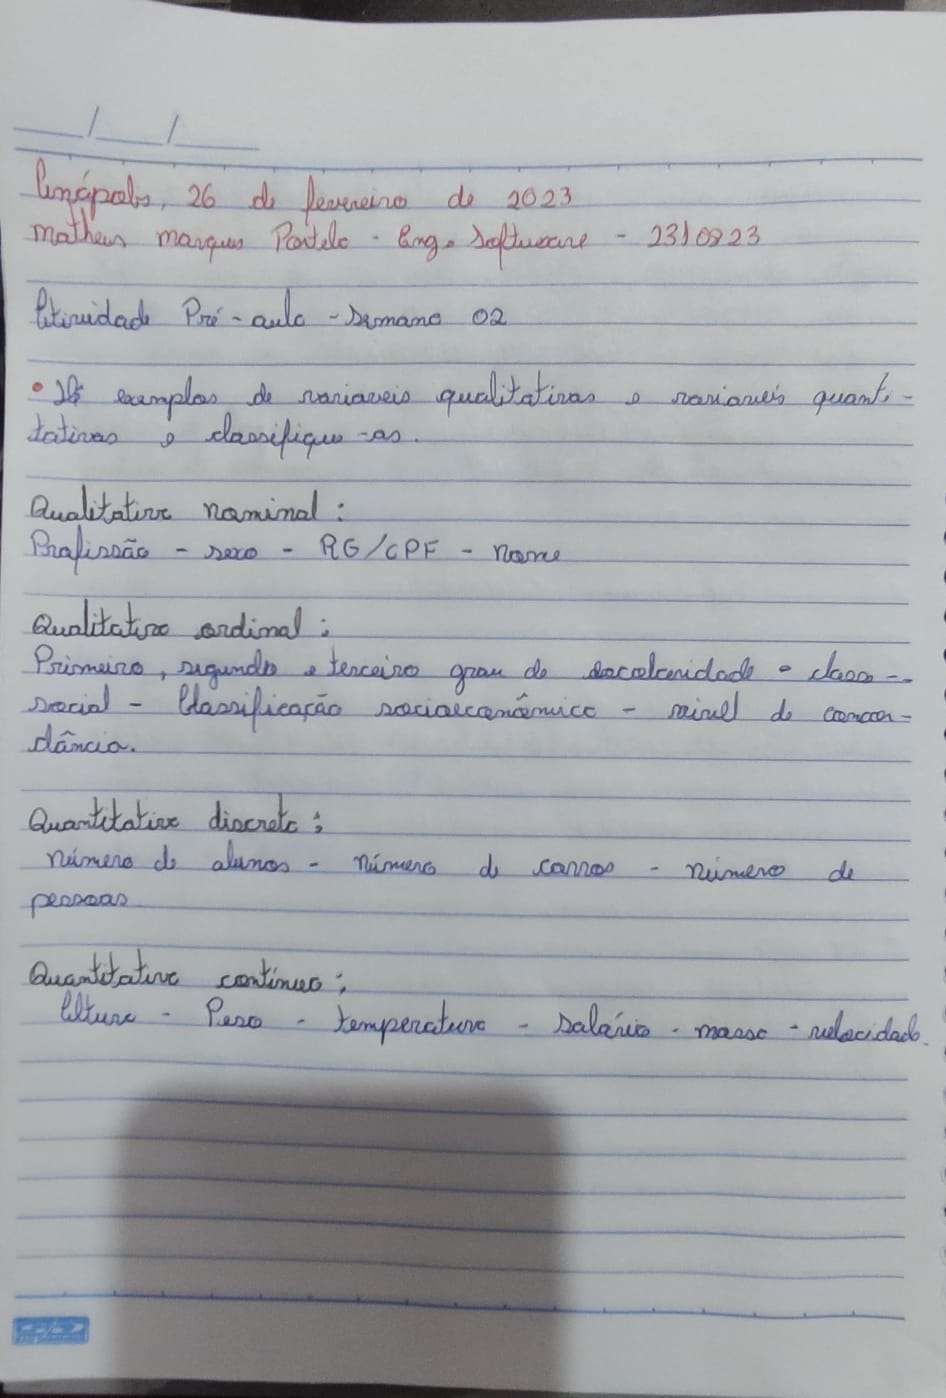 ___/___/___
Anápolis, 26 de fevereiro de 2023
Matheus Marques Portela - Eng. Software - 2310823
Atividade Pré-aula - Semana 02
• Dê exemplos de variaveis qualitativas e variaveis quanti-
tativas e classifique-as.
Qualitativa nominal:
Profissão - sexo - RG/CPF - Nome
Qualitativa ordinal:
Primeiro, segundo e terceiro grau de escolaridade - classe
social - Classificação socioeconômica - nível de concor-
dância.
Quantitativa discreta:
Número de alunos - Número de carros - número de
pessoas
Quantitativa contínua:
Altura - Peso - temperatura - salário - massa - velocidade.